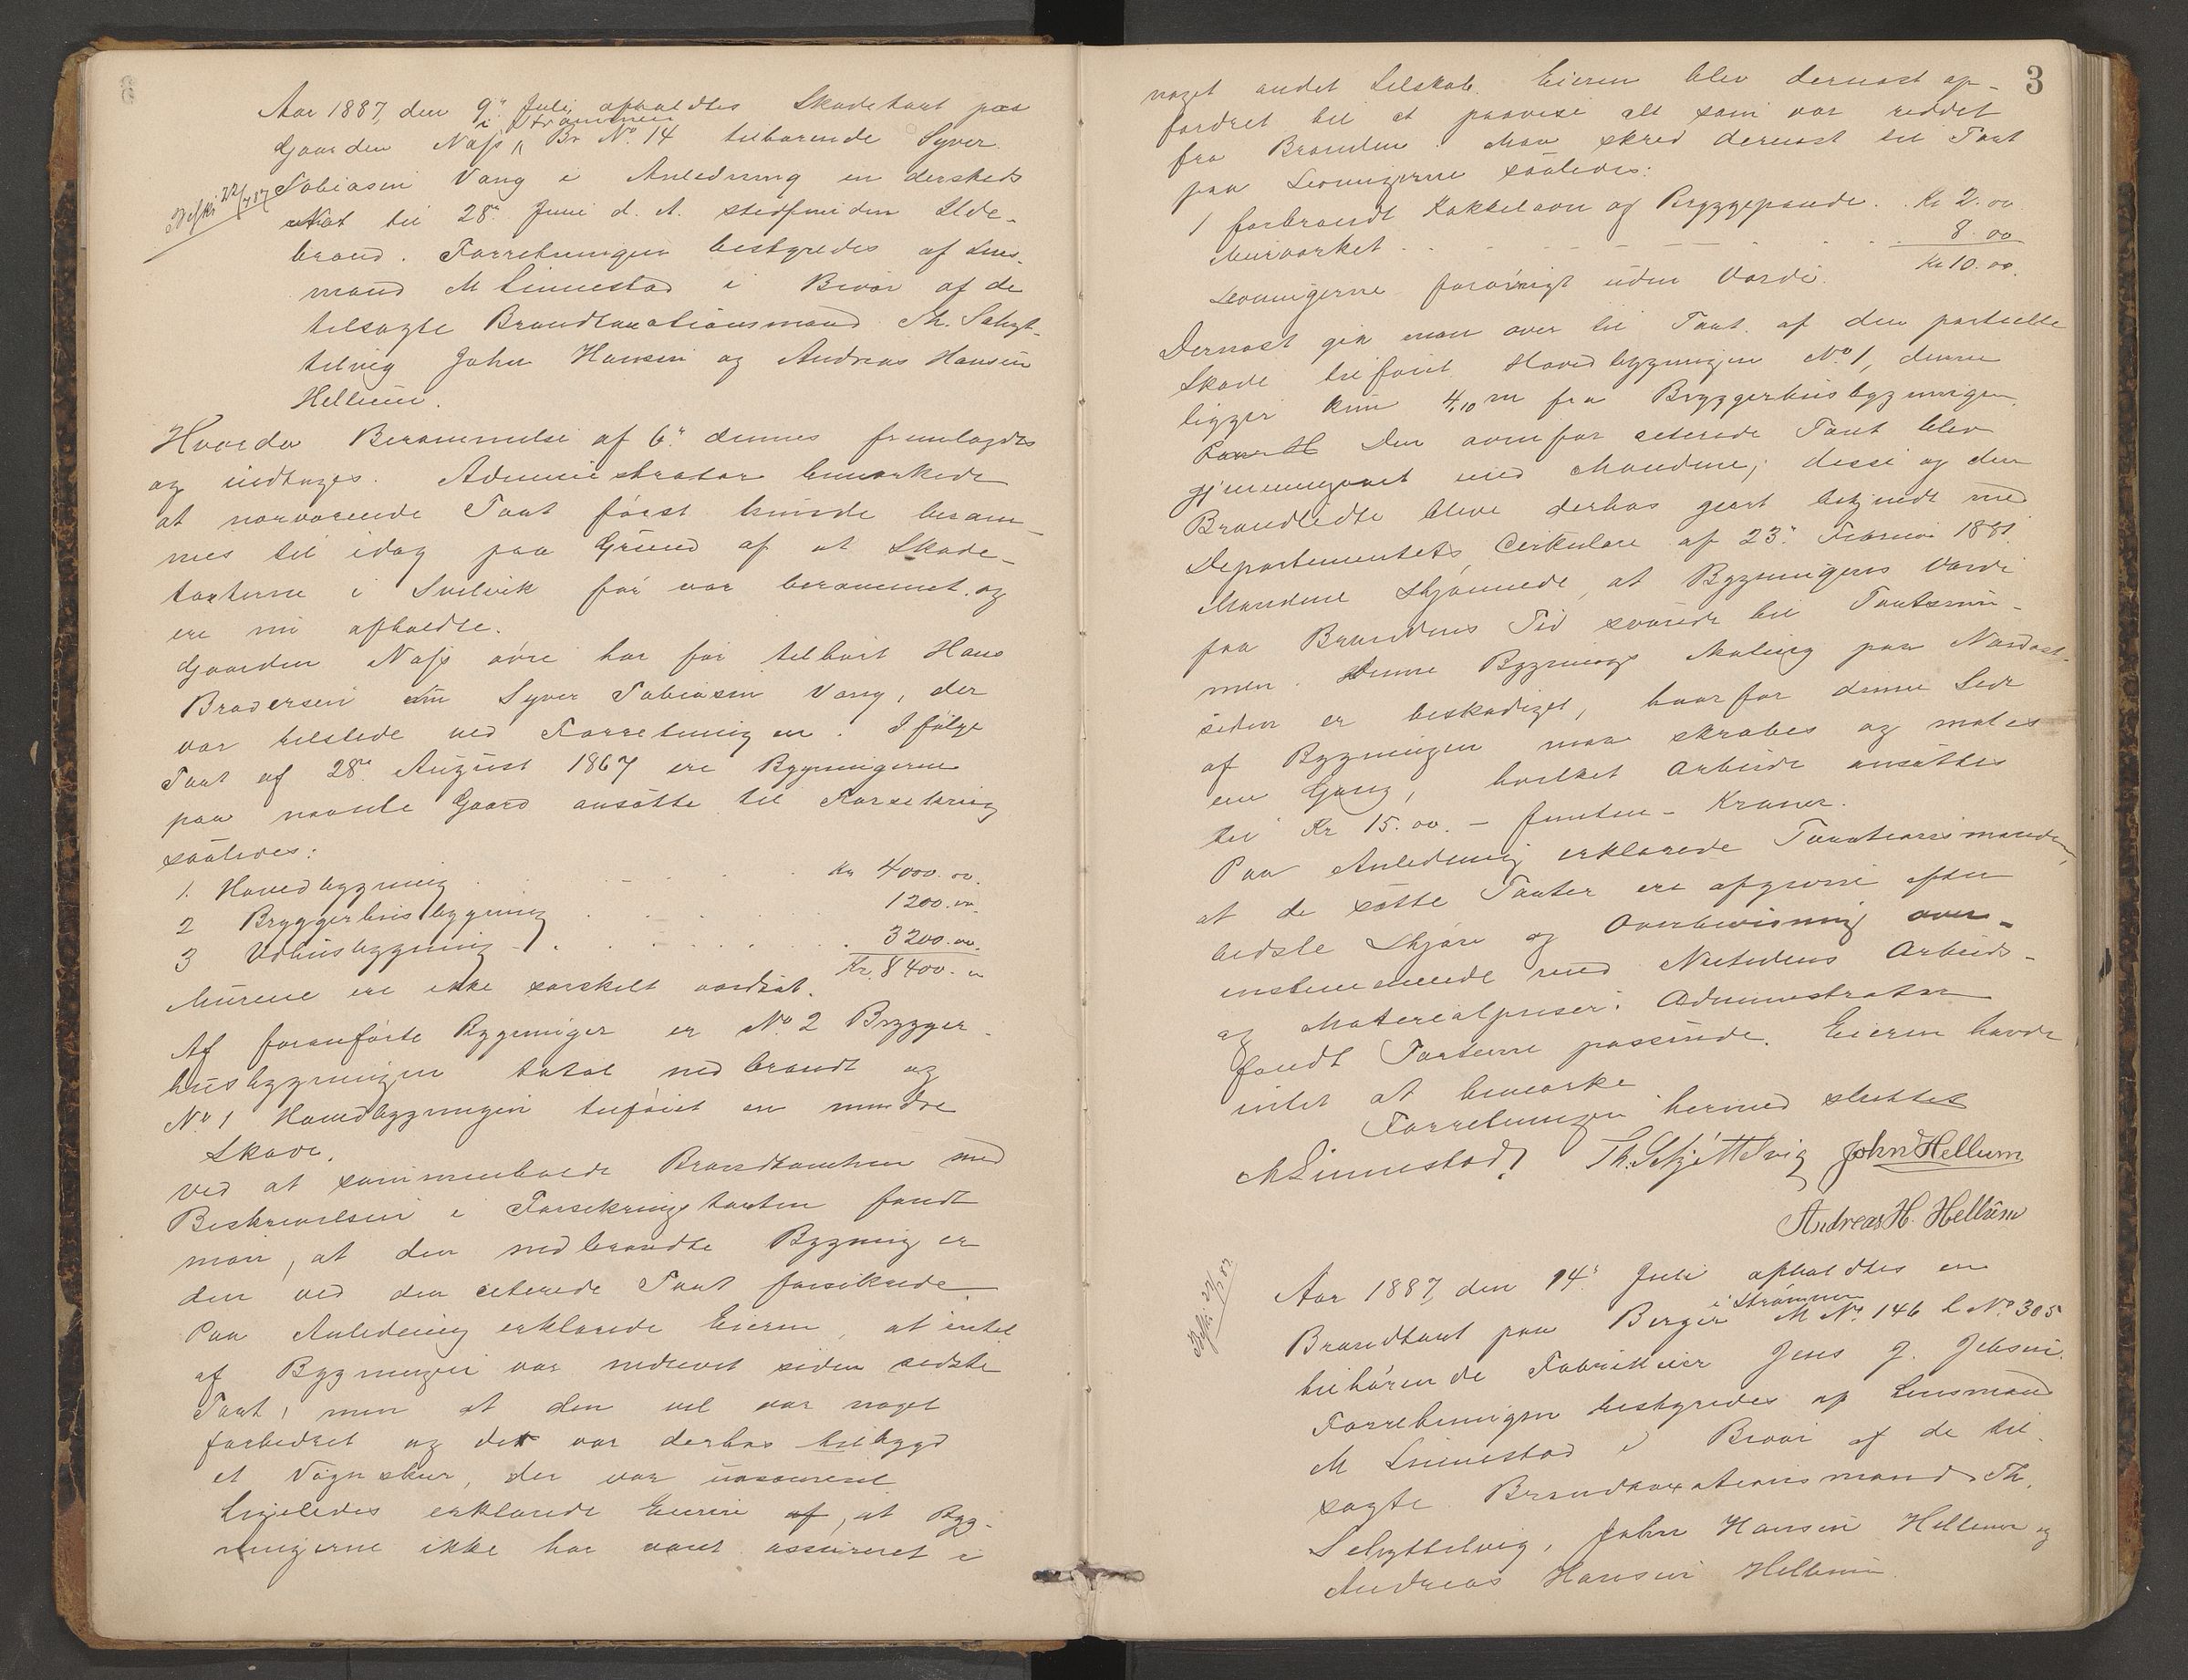 Aar 1887, den 9de Juli afholdtes Skadetaxt paa
Gaarden Næss i Strømmen Br No. 14 tilhørende Syver
Tobiasen Vang i Anledning en dersteds
Nat til 28de Juni d. A. stedfunden Ilde-
brand. Forretningen bestyredes af Lens-
mand M Linnestad i Bivær af de
tilsagte Brandtaxationsmænd Th. Schyt-
telvig John Hansen og Andreas Hansen
Hellum.
Besk. 22/7 87
Hvorda Berammelse af 6te dennes fremlagdes
og indtages. Administrator bemærkede
at nærværende Taxt først kunde beram-
mes til idag paa Grund af at Skade-
taxterne i Svelvik før var berammet og
ere nu afholdte.
Gaarden Næss øvre har før tilhørt Hans
Brodersen nu Syver Tobiasen Vang, der
var tilstede ved Forretningen. Ifølge
Taxt af 28de August 1867 ere Bygningerne
paa nævnte Gaard ansatte til Forsikring
saaledes:
1. Hovedbygning . . . . . Kr 4000.00.
2 Bryggerhusbygning . . . . 1200.00.
3 Udhusbygning . . . . . . 3200.00.
Kr. 8400.00
Murene ere ikke særskilt værdsat.
Af foranførte Bygninger er No. 2 Brygger-
husbygningen total nedbrændt og
No 1 Hovedbygningen tilføiet en mindre
Skade.
Ved at sammenholde Brandtomten med
Beskrivelsen i Forsikringstaxten fandt
man, at den nedbrændte Bygning er
den ved den citerede Taxt forsikrede.
Paa Anledning erklærede Eieren, at intet
af Bygningen var nedrevet siden sidste
Taxt, men at den vel var noget
forbedret og det var derhos tilbygd
et Vognskur, der var uassureret
Ligeledes erklærede Eieren af, at Byg-
ningerne ikke har været assureret i
3
noget andet Selskab. Eieren blev dernæst op-
fordret til at paavise alt som var reddet
fra Branden. Man skred dernæst til Taxt
paa Levningerne saaledes:
1 forbrændt Kakkelovn og Bryggepande. . Kr 2.00
Murværket . . - - - - . . . 8.00
Kr 10.00.
Levningerne forøvrigt uden Værdi.
Dernæst gik man over til Taxt af den partielle
Skade tilføiet Hovedbygningen No. 1, denne
ligger kun 4,10 m fra Bryggerhusbygningen.
Den ovenfor citerede Taxt blev
gjennemgaaet med Mændene; disse og den
Brandlidte bleve derhos gjort bekjendt med
Departementets Cirkulære af 23de Februar 1881.
Mændene skjønnede, at Bygningens Værdi
paa Brandens Tid svarede til Taxtsum-
men. Denne Bygnings Maling paa Nordøst-
siden er beskadiget, hvorfor denne Side
af Bygningen maa skrabes og males
en Gang, hvilket Arbeide ansattes
til Kr 15.00. - femten - Kroner.
Paa Anledning erklærede Taxationsmændene,
at de satte Taxter ere afgivne efter
bedste Skjøn og Overbevisning over-
ensstemmende med Nutidens Arbeids-
og Materialpriser. Administrator
fandt Taxterne passende. Eieren havde
intet at bemærke
Forretningen hermed sluttet
M Linnestad Th. Schjøttelvig John Hellum
Andreas H. Hellum
Besk. 22/7 87.
Aar 1887, den 14de Juli afholdtes en
Brandtaxt paa Berger i Strømmen M No. 146 L No. 305
tilhørende Fabrikeier Jens J. Jebsen.
Forretningen bestyredes af Lensmand
M Linnestad i Bivær af de til-
sagte Brandtaxationsmænd Th.
Schyttelvig, John Hansen Hellum og
Andreas Hansen Hellum